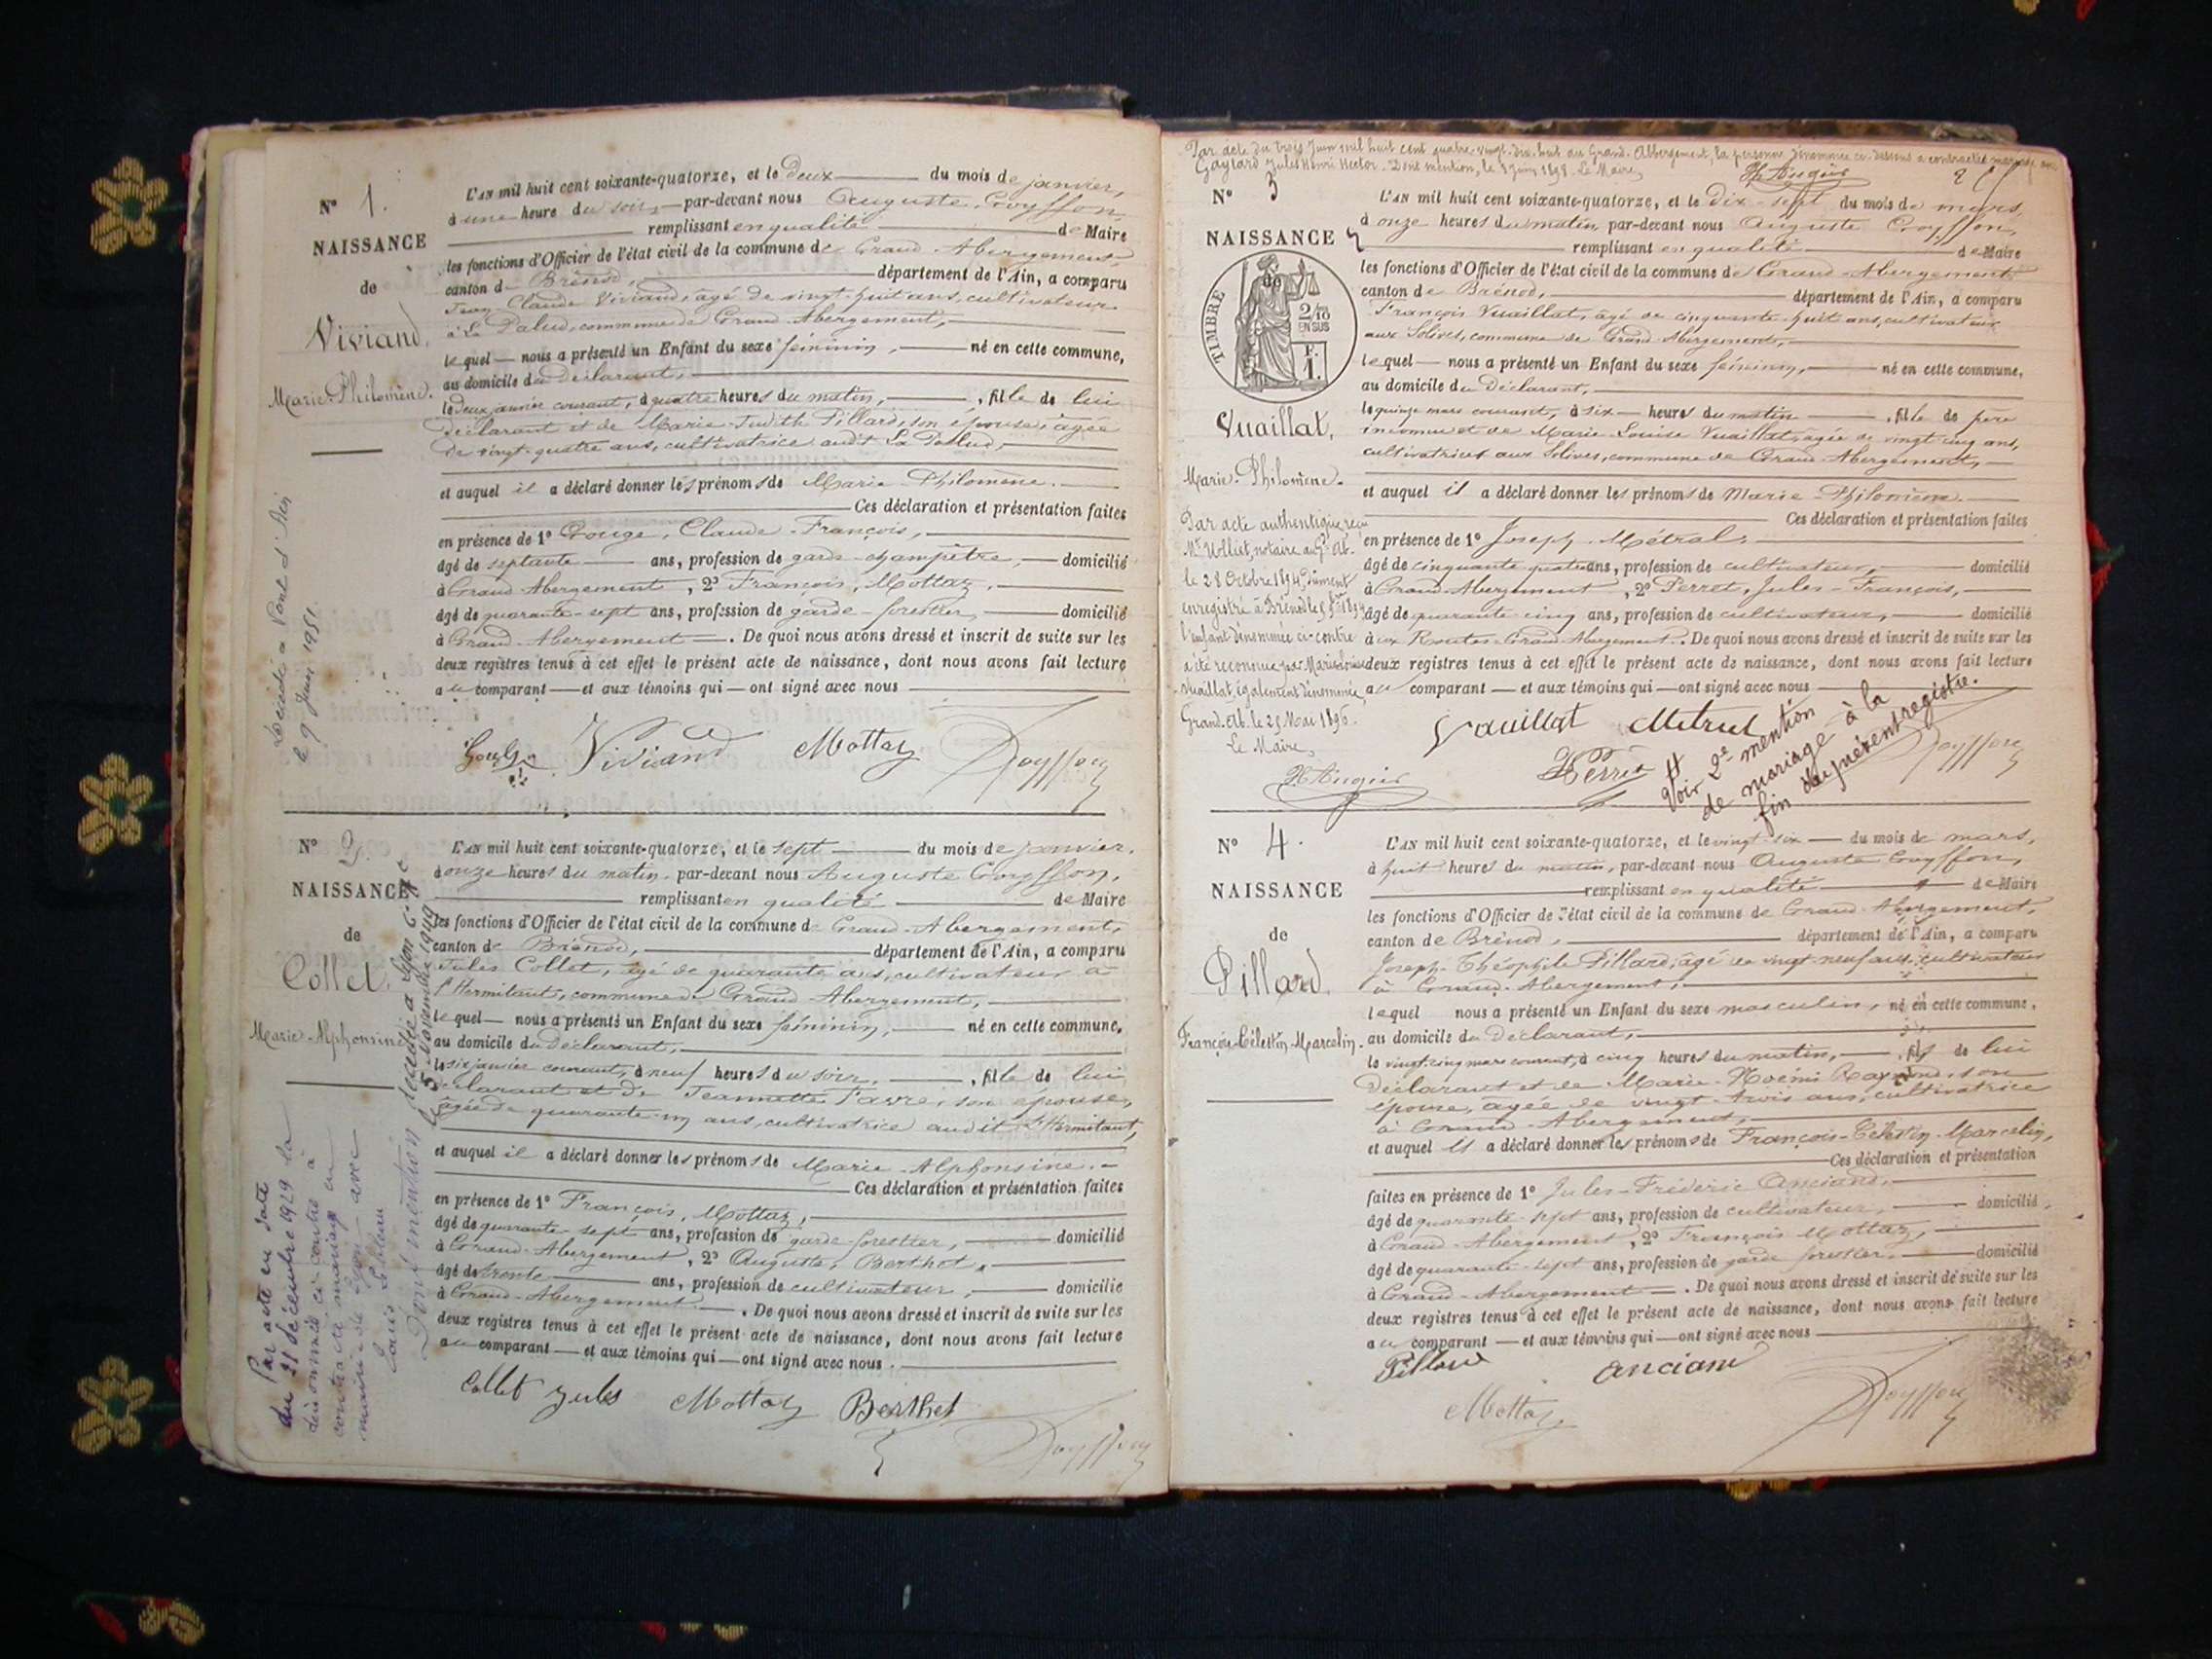 N° 1.
NAISSANCE
de
Viviand,
Marie-Philomène.
Décédée à Pont d'Ain
le 9 Juin 1951.
L'AN mil huit cent soixante-quatorze, et le deux du mois de janvier,
à une heure du soir, par-devant nous Auguste
remplissant en qualité de Maire
les fonctions d'Officier de l'état civil de la commune de Grand-Abergement,
canton de Brénod, département de l'Ain, a comparu
Jean Claude Viviand, âgé de vingt-huit ans, cultivateur
à La Palud, commune de Grand-Abergement,
lequel nous a présenté un Enfant du sexe féminin, né en cette commune,
au domicile du déclarant,
le deux janvier courant, à quatre heures du matin, , fille de lui
déclarant et de Marie-Judith Pillard, son épouse, âgée
de vingt-quatre ans, cultivatrice audit La Palud,
et auquel il a déclaré donner les prénoms de Marie-Philomène.
Ces déclaration et présentation faites
en présence de 1° Gouge, Claude-François,
âgé de septante ans, profession de garde-champêtre, domicilié
à Grand-Abergement, 2° François, Mottaz,
âgé de quarante-sept ans, profession de garde-forestier, domicilié
à Grand-Abergement. De quoi nous avons dressé et inscrit de suite sur les
deux registres tenus à cet effet le présent acte de naissance, dont nous avons fait lecture
au comparant et aux témoins qui ont signé avec nous
Viviand Mottaz
N° 2.
NAISSANCE
de
Collet,
Marie-Alphonsine
Décédée à Lyon 6e
le 5 Novembre 1949
Par acte en date
du 21 décembre 1929 la
dénommée ci-contre à
contracté mariage en
mairie de Lyon avec
Louis
Dont mention
L'AN mil huit cent soixante-quatorze, et le sept du mois de janvier,
à onze heures du matin, par-devant nous Auguste
remplissant en qualité de Maire
les fonctions d'Officier de l'état civil de la commune de Grand-Abergement,
canton de Brénod, département de l'Ain, a comparu
Jules Collet, âgé de quarante ans, cultivateur à
l'Hermitant, commune de Grand-Abergement,
lequel nous a présenté un Enfant du sexe féminin, né en cette commune,
au domicile du déclarant,
le six janvier courant, à neuf heures du soir, , fille de lui
déclarant et de Jeannette Favre, son épouse,
âgée de quarante-un ans, cultivatrice audit l'Hermitant,
et auquel il a déclaré donner les prénoms de Marie-Alphonsine.
Ces déclaration et présentation faites
en présence de 1° François, Mottaz,
âgé de quarante-sept ans, profession de garde-forestier, domicilié
à Grand-Abergement, 2° Auguste, Berthet,
âgé de trente ans, profession de cultivateur, domicilié
à Grand-Abergement. De quoi nous avons dressé et inscrit de suite sur les
deux registres tenus à cet effet le présent acte de naissance, dont nous avons fait lecture
au comparant et aux témoins qui ont signé avec nous.
Collet Jules Mottaz Berthet
Par acte du trois Juin mil huit cent quatre-vingt-dix-huit au Grand-Abbergement, la personne dénommée ci-dessous a contracté mariage avec
Gaylard Jules Henri Hector. Dont mention, le 8 Juin 1898. Le Maire,
N° 3
NAISSANCE
de
TIMBRE
2/10
EN SUS
F.
1.
Vuaillat,
Marie-Philomène.
Par acte authentique reçu
Me notaire au Gd Ab.
le 28 Octobre 1894 dûment
enregistré à Brénod le 1894
l'enfant dénommée ci-contre
a été reconnue par Marie Louise
Vuaillat, également dénommée,
Grand-Ab. le 25 Mai 1896.
Le Maire,
L'AN mil huit cent soixante-quatorze, et le dix-sept du mois de mars,
à onze heures du matin, par-devant nous Auguste
remplissant en qualité de Maire
les fonctions d'Officier de l'état civil de la commune de Grand-Abergement,
canton de Brénod, département de l'Ain, a comparu
François Vuaillat, âgé de cinquante-huit ans, cultivateur
aux Solives, commune de Grand-Abergement,
lequel nous a présenté un Enfant du sexe féminin, né en cette commune,
au domicile du déclarant,
le quinze mars courant, à six heures du matin , fille de père
inconnu et de Marie-Louise Vuaillat, âgée de vingt-cinq ans,
cultivatrice aux Solives, commune de Grand-Abergement,
et auquel il a déclaré donner les prénoms de Marie-Philomène.
Ces déclaration et présentation faites
en présence de 1° Joseph Métral,
âgé de cinquante quatre ans, profession de cultivateur, domicilié
à Grand-Abergement, 2° Perret, Jules-François,
âgé de quarante-cinq ans, profession de cultivateur, domicilié
à aux Routes-Grand-Abergement. De quoi nous avons dressé et inscrit de suite sur les
deux registres tenus à cet effet le présent acte de naissance, dont nous avons fait lecture
au comparant et aux témoins qui ont signé avec nous
Vuaillat Métral
Perret
Voir 2e mention
de mariage à la
fin du présent registre.
N° 4.
NAISSANCE
de
Pillard,
François-Célestin-Marcelin.
L'AN mil huit cent soixante-quatorze, et le vingt-six du mois de mars,
à huit heures du matin, par-devant nous Auguste
remplissant en qualité de Maire
les fonctions d'Officier de l'état civil de la commune de Grand-Abergement,
canton de Brénod, département de l'Ain, a comparu
Joseph-Théophile Pillard, âgé de vingt-neuf ans, cultivateur
à Grand-Abergement,
lequel nous a présenté un Enfant du sexe masculin, né en cette commune,
au domicile du déclarant,
le vingt-cinq mars courant, à cinq heures du matin, , fils de lui
déclarant et de Marie-Noémi Raymond, son
épouse, âgée de vingt-trois ans, cultivatrice
à Grand-Abergement,
et auquel il a déclaré donner les prénoms de François-Célestin-Marcelin,
Ces déclaration et présentation
faites en présence de 1° Jules-Fréderic Anciand,
âgé de quarante-sept ans, profession de cultivateur, domicilié,
à Grand-Abergement, 2° François Mottaz,
âgé de quarante-sept ans, profession de garde forestier, domicilié
à Grand-Abergement. De quoi nous avons dressé et inscrit de suite sur les
deux registres tenus à cet effet le présent acte de naissance, dont nous avons fait lecture
au comparant et aux témoins qui ont signé avec nous
Pillard anciand
Mottaz